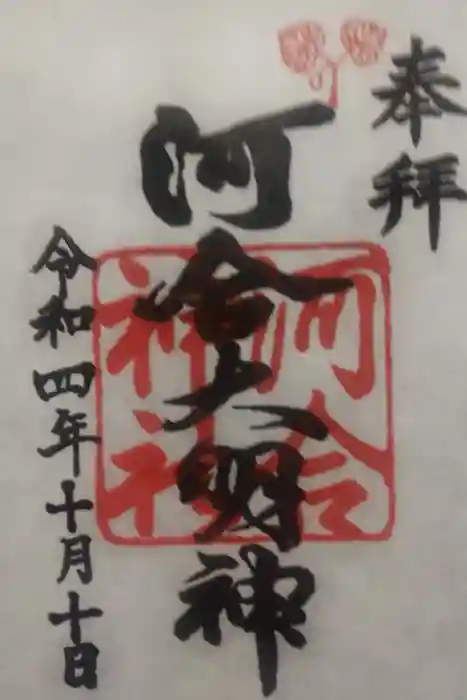 奉拝
河合大明神
河合
神社
令和四年十月十日